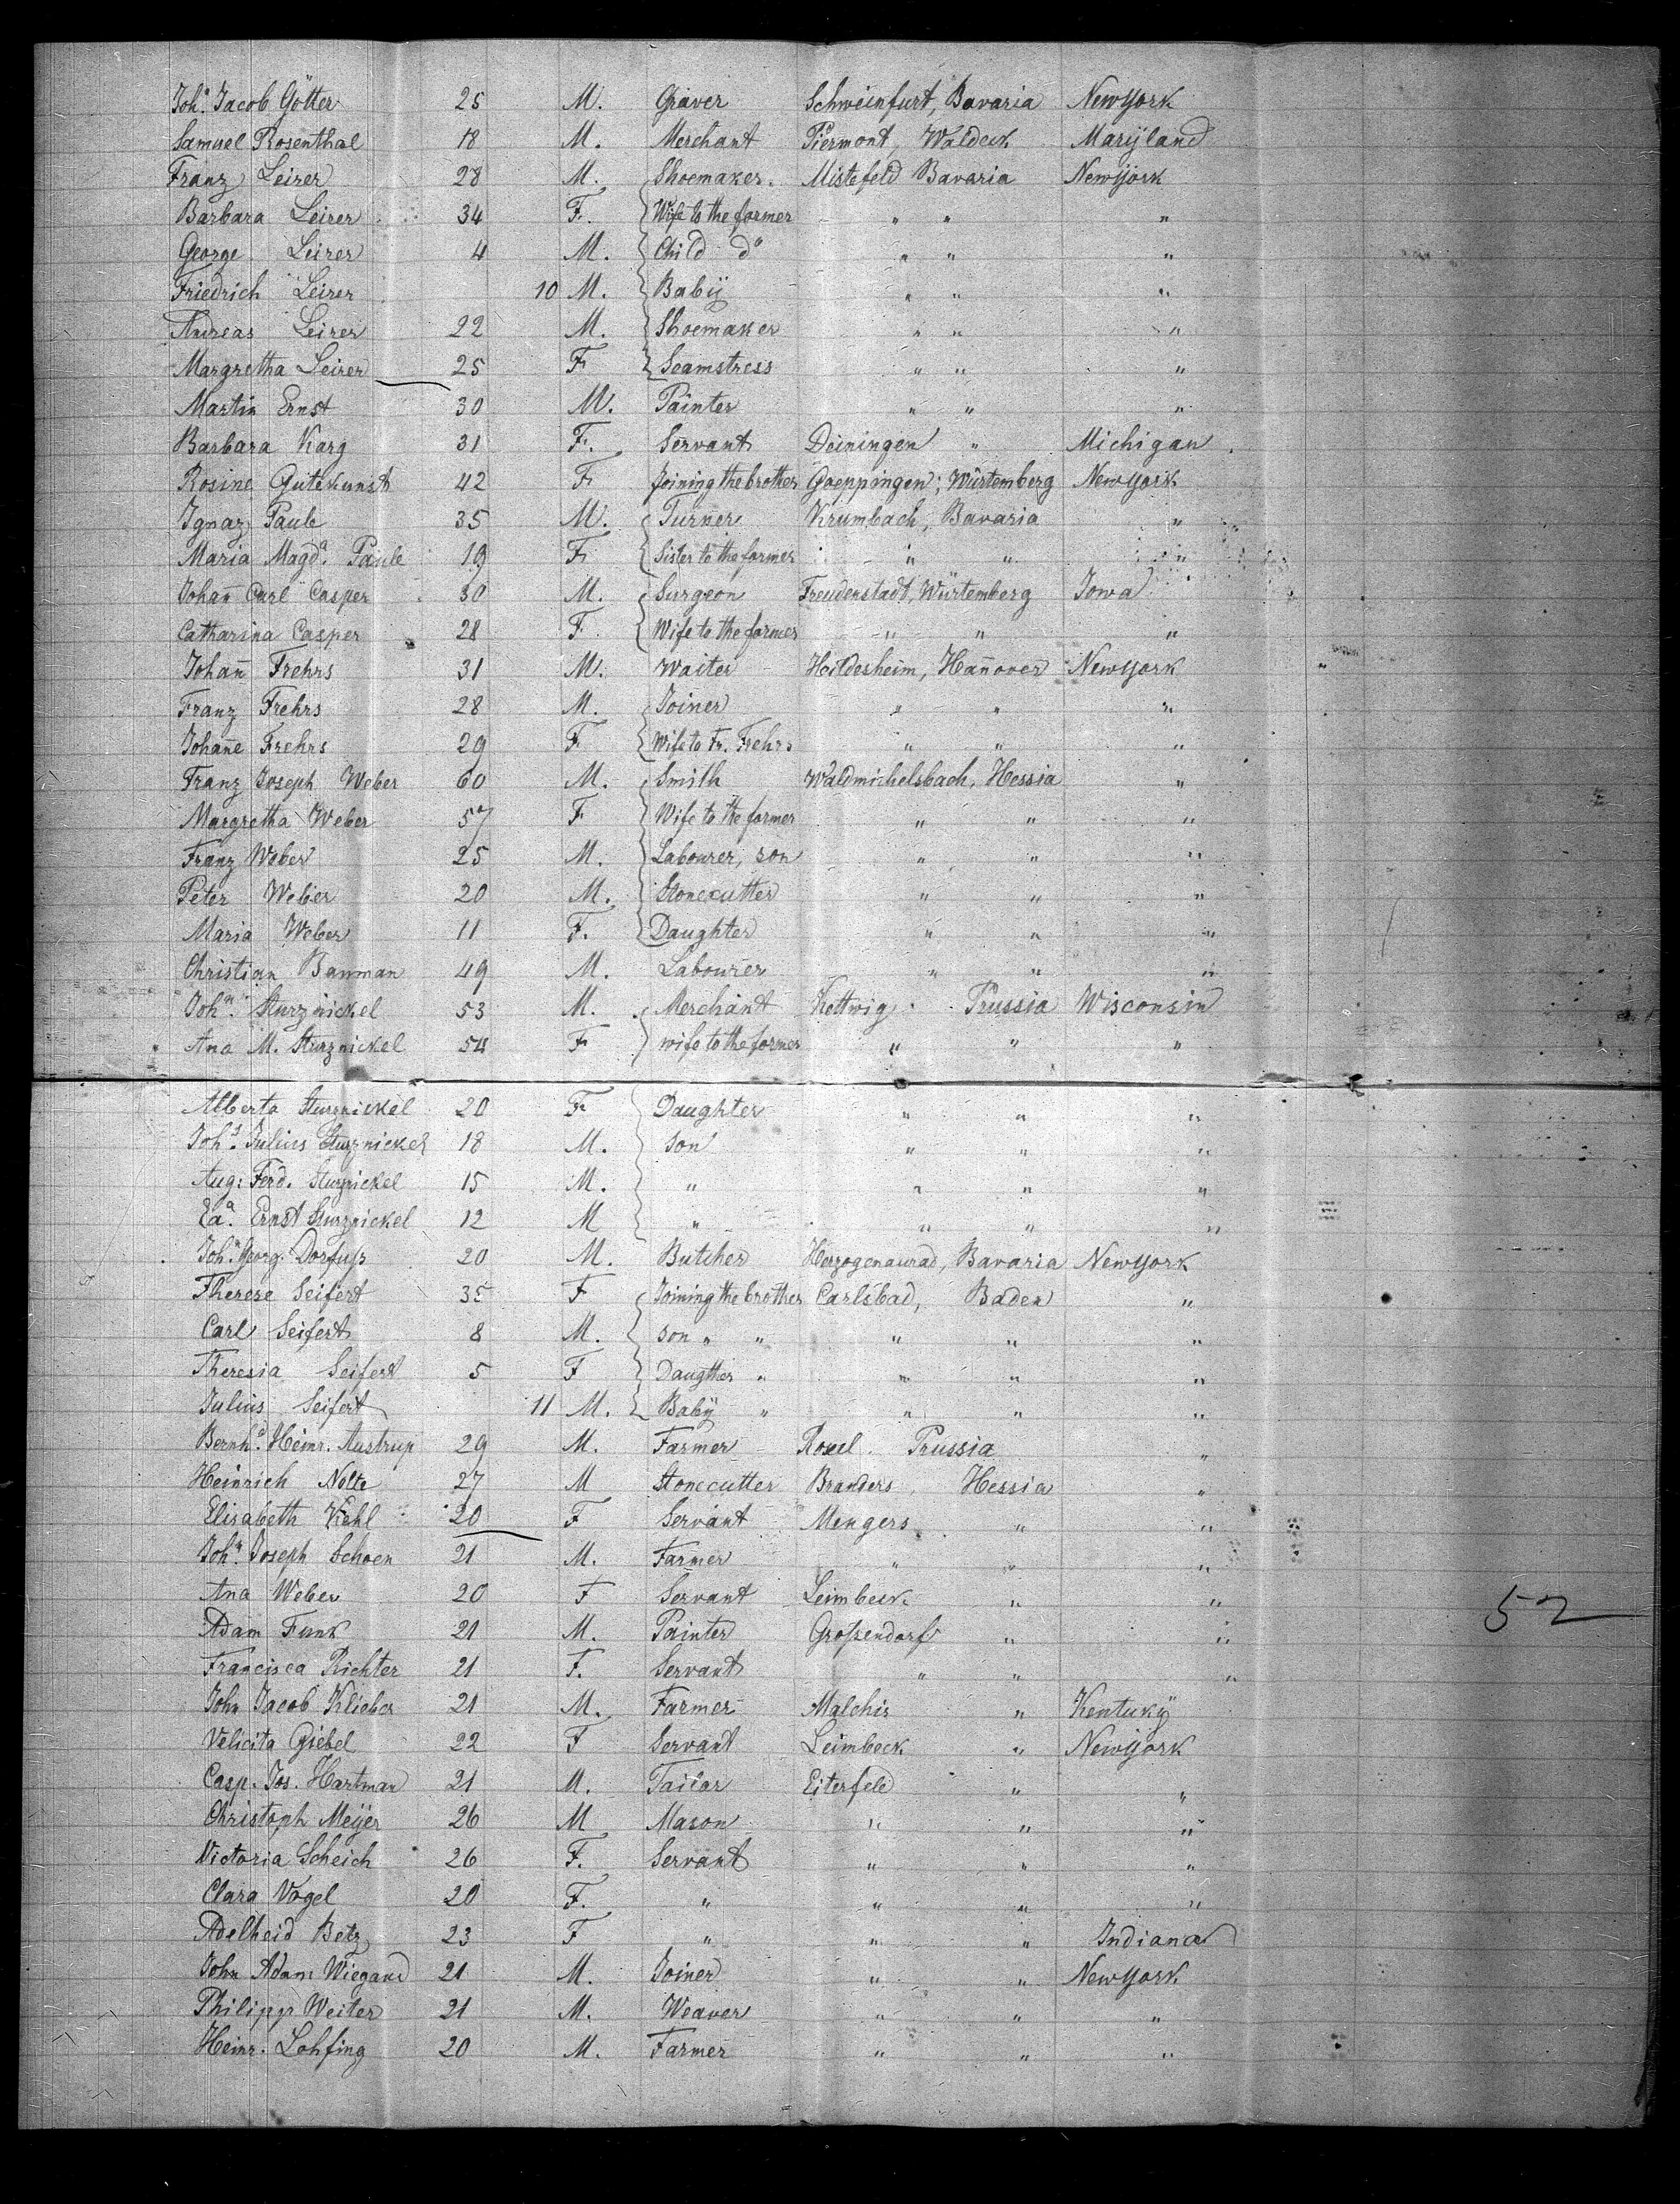 Johⁿ. Jacob Götter 25 M. Graver Schweinfurt, Bavaria New York
Samuel Rosenthal 18 M. Merchant Piermont, Waldeck Marÿland
Franz Leirer 28 M. Shoemaker. Mistefeld Bavaria New York
Barbara Leirer 34 F. Wife to the former " " "
George Leirer 4 M. Child dº " " "
Friedrich Leirer 10 M. Babÿ " " "
Andreas Leirer 22 M. Shoemaker " " "
Margretha Leirer 25 F Seamstress " " "
Martin Ernst 30 M. Painter " " "
Barbara Karg 31 F. Servant Deiningen " Michigan
Rosine Gutekunst 42 F Joining the brother Goeppingen; Würtemberg New York
Ignaz Paule 35 M. Turner Krumbach, Bavaria "
Maria Magdª. Paule 19 F Sister to the former " " "
Johan̄ Carl Casper 30 M. Surgeon Freudenstadt, Würtemberg Iowa
Catharina Casper 28 F Wife to the former " " "
Johan̄ Frehrs 31 M. Waiter Heildesheim, Han̄over New York
Franz Frehrs 28 M. Joiner " " "
Johan̄e Frehrs 29 F Wife to Fr. Frehrs " " "
Franz Joseph Weber 60 M. Smith Waldmichelsbach, Hessia "
Margretha Weber 57 F Wife to the former " " "
Franz Weber 25 M. Labourer, son " " "
Peter Weber 20 M. Stonecutter " " "
Maria Weber 11 F. Daughter " " "
Christian Bauman 49 M. Labourer " " "
Johⁿ. Sturznickel 53 M. Merchant Kettwig Prussia Wisconsin
Ana M. Sturznickel 54 F wife to the former " " "
Alberta Sturznickel 20 F Daughter " " "
Johˢ. Julius Sturznickel 18 M. son " " "
Aug: Ferd. Sturznickel 15 M. " " " "
Ernst Sturznickel 12 M " " " "
Johⁿ Georg Dorfuß 20 M. Butcher Herzogenaurad, Bavaria New York
Therese Seifert 35 F Joining the brother Carlsbad, Baden "
Carl Seifert 8 M. son " " " " "
Theresia Seifert 5 F Daugther " " " "
Julius Seifert 11 M. Babÿ " " " "
Bernhᵈ. Heinr. Austrup 29 M. Farmer Roxel. Prussia "
Heinrich Nolte 27 M Stonecutter Branders, Hessia "
Elisabeth Kehl 20 F Servant Mengers " "
Johⁿ. Joseph Schoen 21 M. Farmer " " "
Ana Weber 20 F Servant Leimbeck " "
Adam Funk 21 M. Painter Großendorf " "
Francisca Richter 21 F. Servant " " "
John Jacob Klieber 21 M. Farmer Malchis " Kentukÿ
Velicita Giebel 22 F Servant Leimbeck " New York
Casp. Jos. Hartman 21 M. Tailor Eiterfeld " "
Christoph Meÿer 26 M Mason " " "
Victoria Scheich 26 F. Servant " " "
Clara Vogel 20 F. " " " "
Adelheid Betz 23 F " " " Indiana
John Adam Wiegand 21 M. Joiner " " New York
Philipp Weiter 21 M. Weaver " " "
Heinr. Lohfing 20 M. Farmer " " "
52